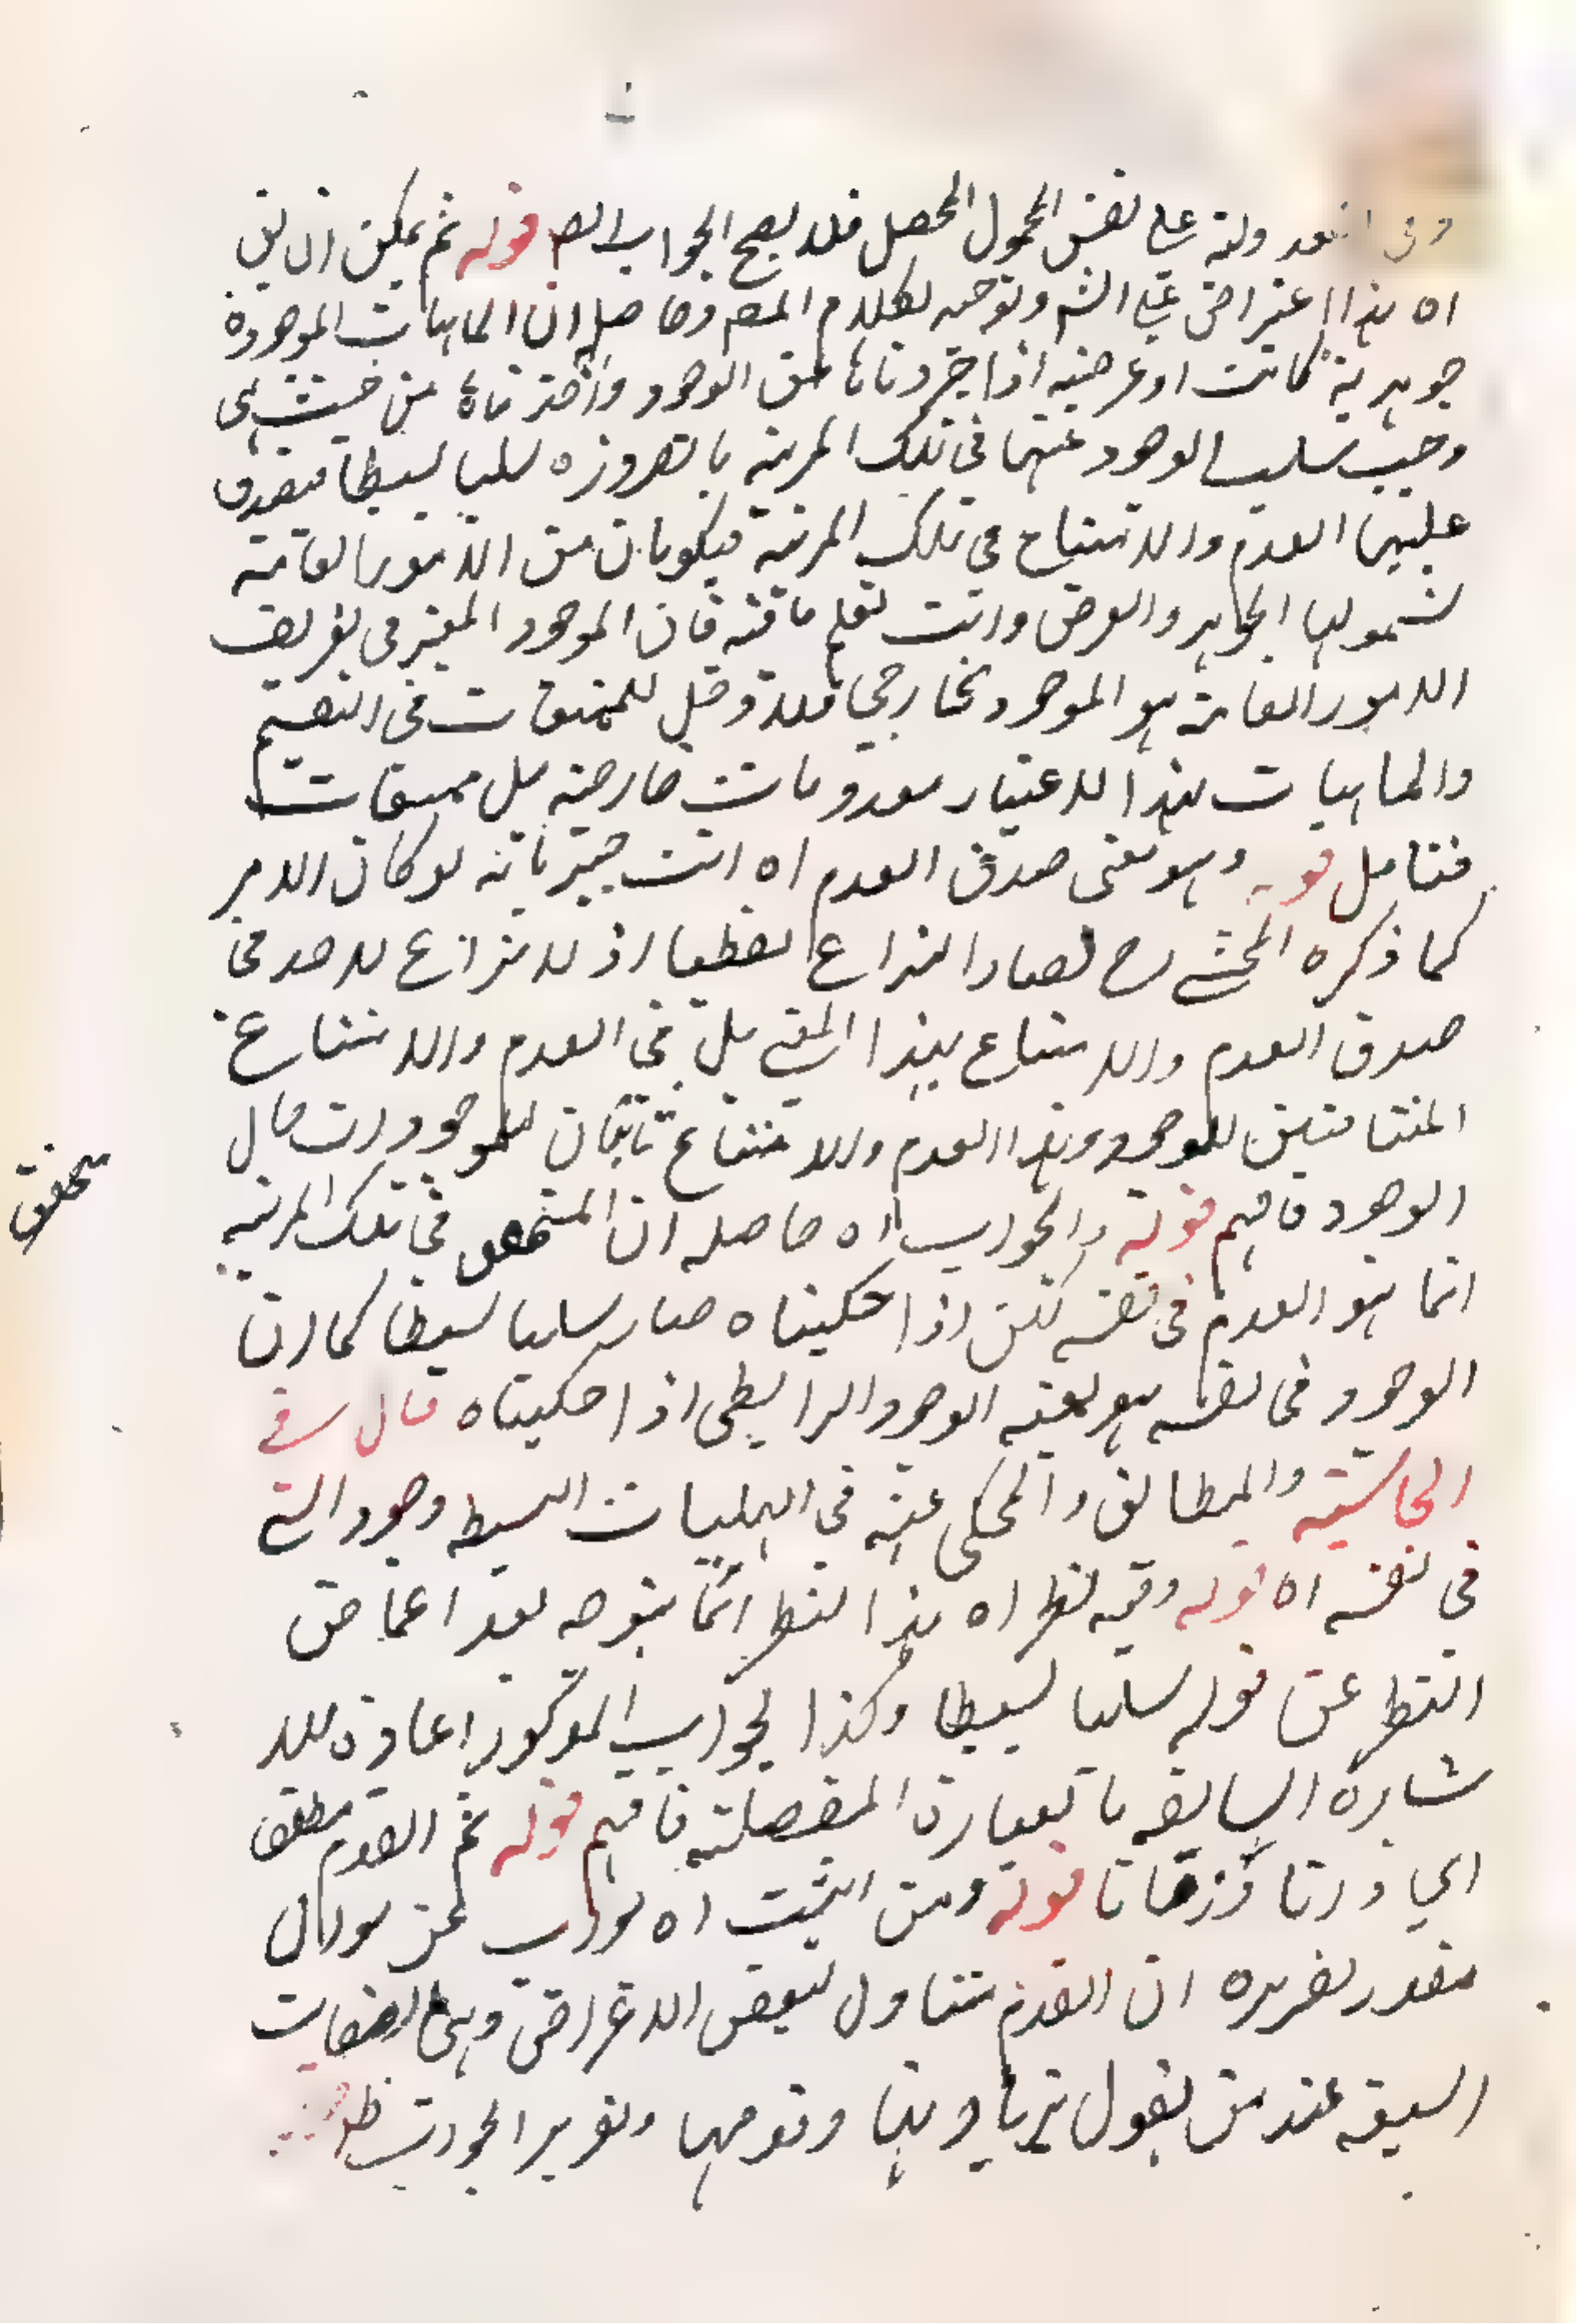 المعدولة على نفس المحمول المحصل فلا يصح الجواب المص قوله ثم يمكن ان يق
اه هذا اعتراض على الش وتوجيه لكلام المص وحاصله ان الماهيات الموجودة
جوهرية كانت او عرضية اذا جردناها عن الوجود واخذناها من حيث هي
وجب سلب الوجود عنها في تلك المرتبة بالضرورة سلبا بسيطا فيصدق
عليها العدم والامتناع في تلك المرتبة فيكونان من الامور العامة
لشمولها الجواهر والعرض وانت تعلم ما فيه فان الموجود المعتبر في تعريف
الامور العامة هو الموجود الخارجي فلا دخل للممتنعات في التقسيم
والماهيات بهذا الاعتبار معدومات خارجية بل ممتنعات
فتامل قوله وهو معنى صدق العدم اه انت خبير بانه لو كان الامر
كما ذكره المحشي رح لصار النزاع لفظيا اذ لا نزاع لاحد في
صدق العدم والامتناع بهذا المعنى بل في العدم والامتناع
المتنافيين للوجود وهذا العدم والامتناع ثابتان للموجودات حال
الوجود فافهم قوله والجواب اه حاصله ان المتحقق في تلك المرتبة
متحقق
انما هو العدم في نفسه لكن اذا حكيناه صار سلبا بسيطا كما ان
الوجود في نفسه هو بعينه الوجود الرابطي اذا حكيناه قال في
الحاشية والمطابق والمحكي عنه في الهليات البسيطه وجود الشي
في نفسه اه قوله وفيه نظر اه هذا النظر انما يتوجه بعد اغماض
النظر عن قوله سلبا بسيطا وكذا الجواب المذكور اعادة للا
شارة السابقه بالعبارة المفصلة فافهم قوله ثم القدم مطلقا
اي ذاتا وزمانا قوله ومن اثبت اه جواب عن سوال
مقدر تقريره ان القدم متناول لبعض الاعراض وهي الصفات
السبعة عند من يقول بزيادتها وقدمها وتقرير الجواب ظاهر